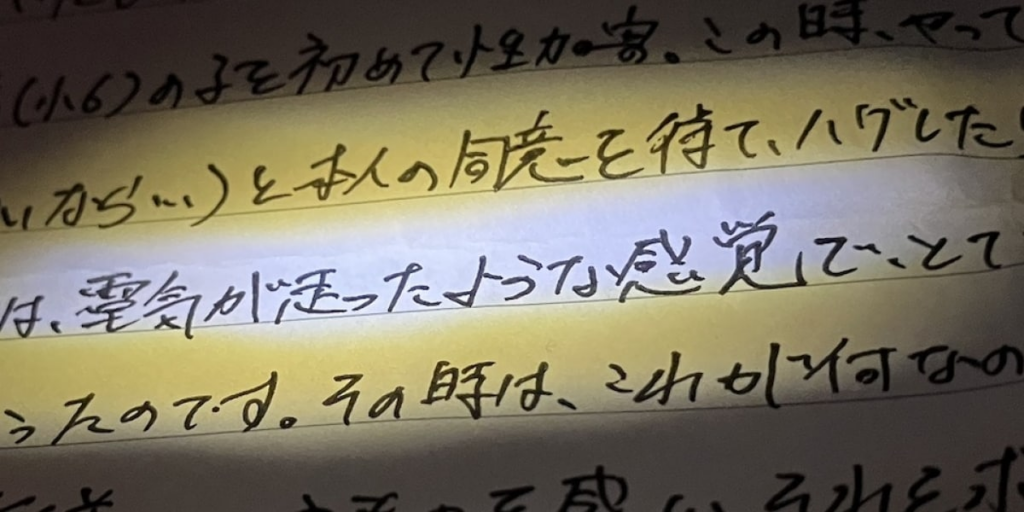 (小6)の子を初めて性加害。この時、やって
いから…)と本人の同意を得て、ハグした
は、電気が走ったような感覚で、とて
うたのです。その時は、これが何なの
を感 それを求